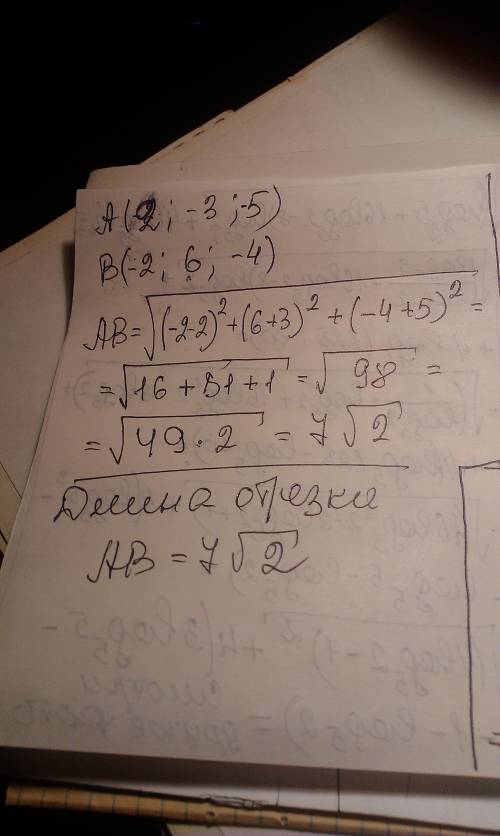 A(2; -3; -5)
B(-2; 6; -4)
AB=√((-2-2)²+(6+3)²+(-4+5)²)=
=√(16+81+1)=√98=
=√(49·2)=7√2
Длина отрезка
AB=7√2